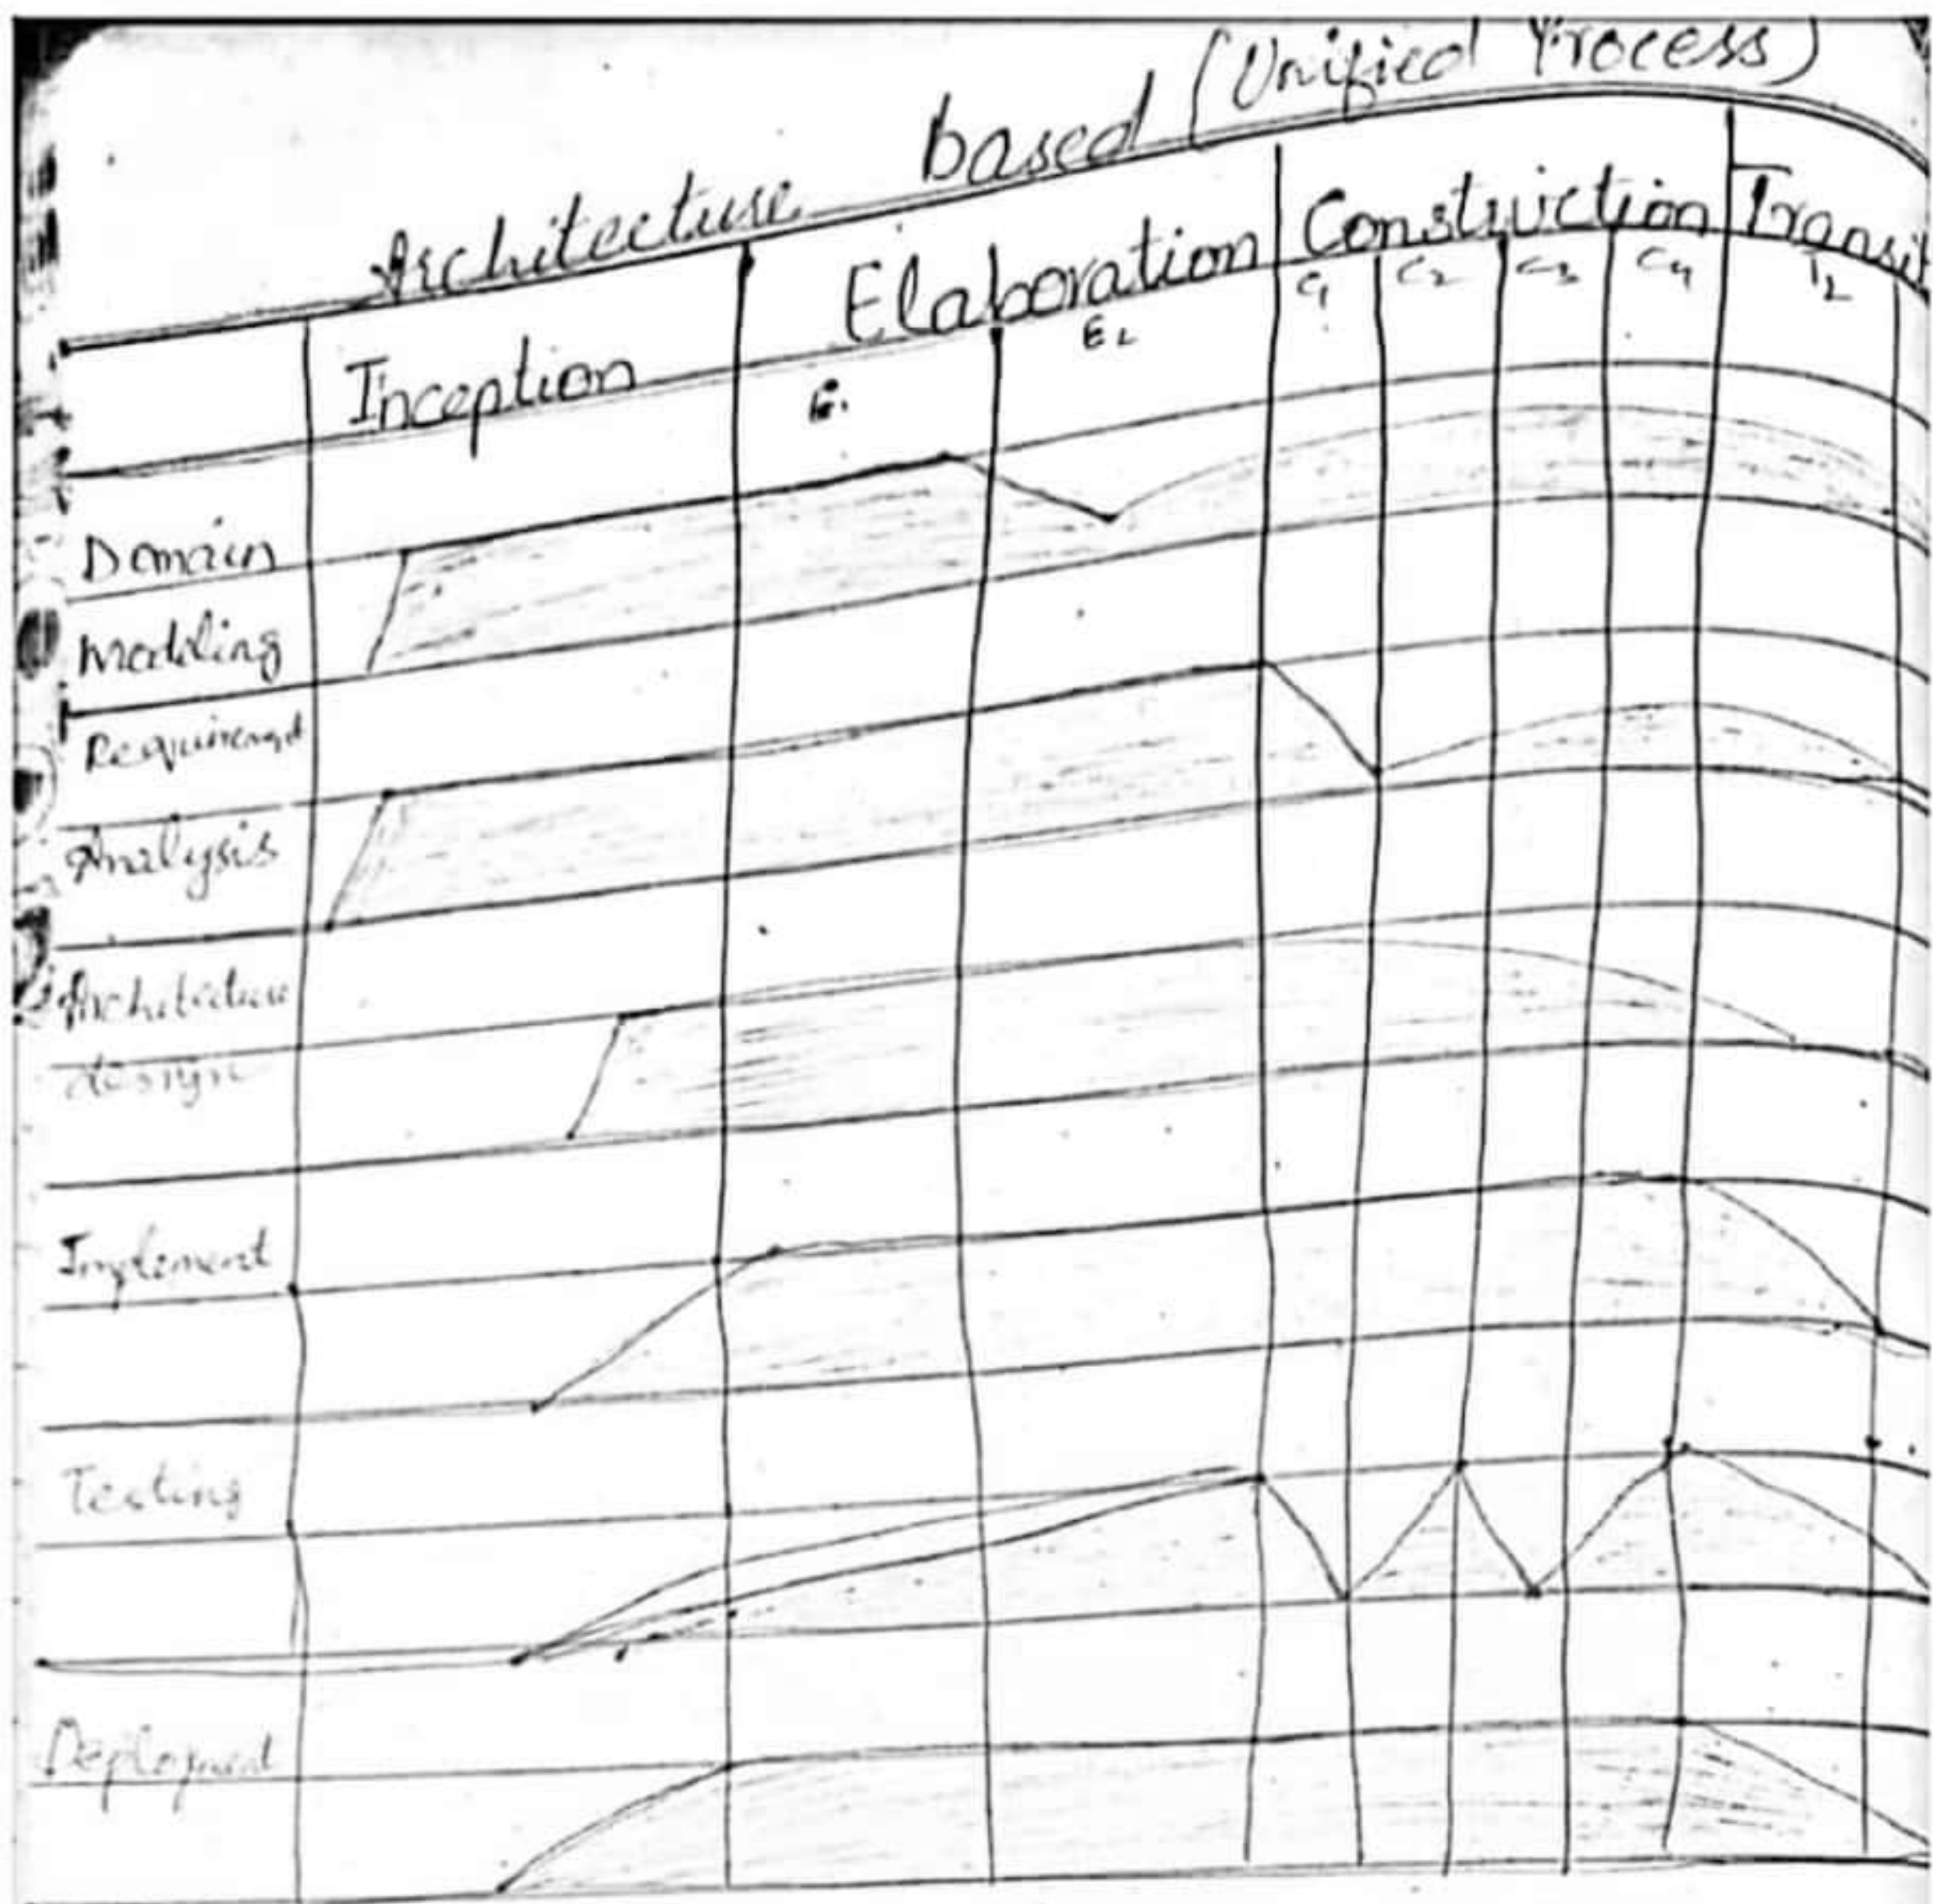 Architecture based (Unified Process)
Inception Elaboration Construction Transit
E1 E2 C1 C2 C3 C4 T2
Domain
Modeling
Requirement
Analysis
Architecture
design
Implement
Testing
Deployment